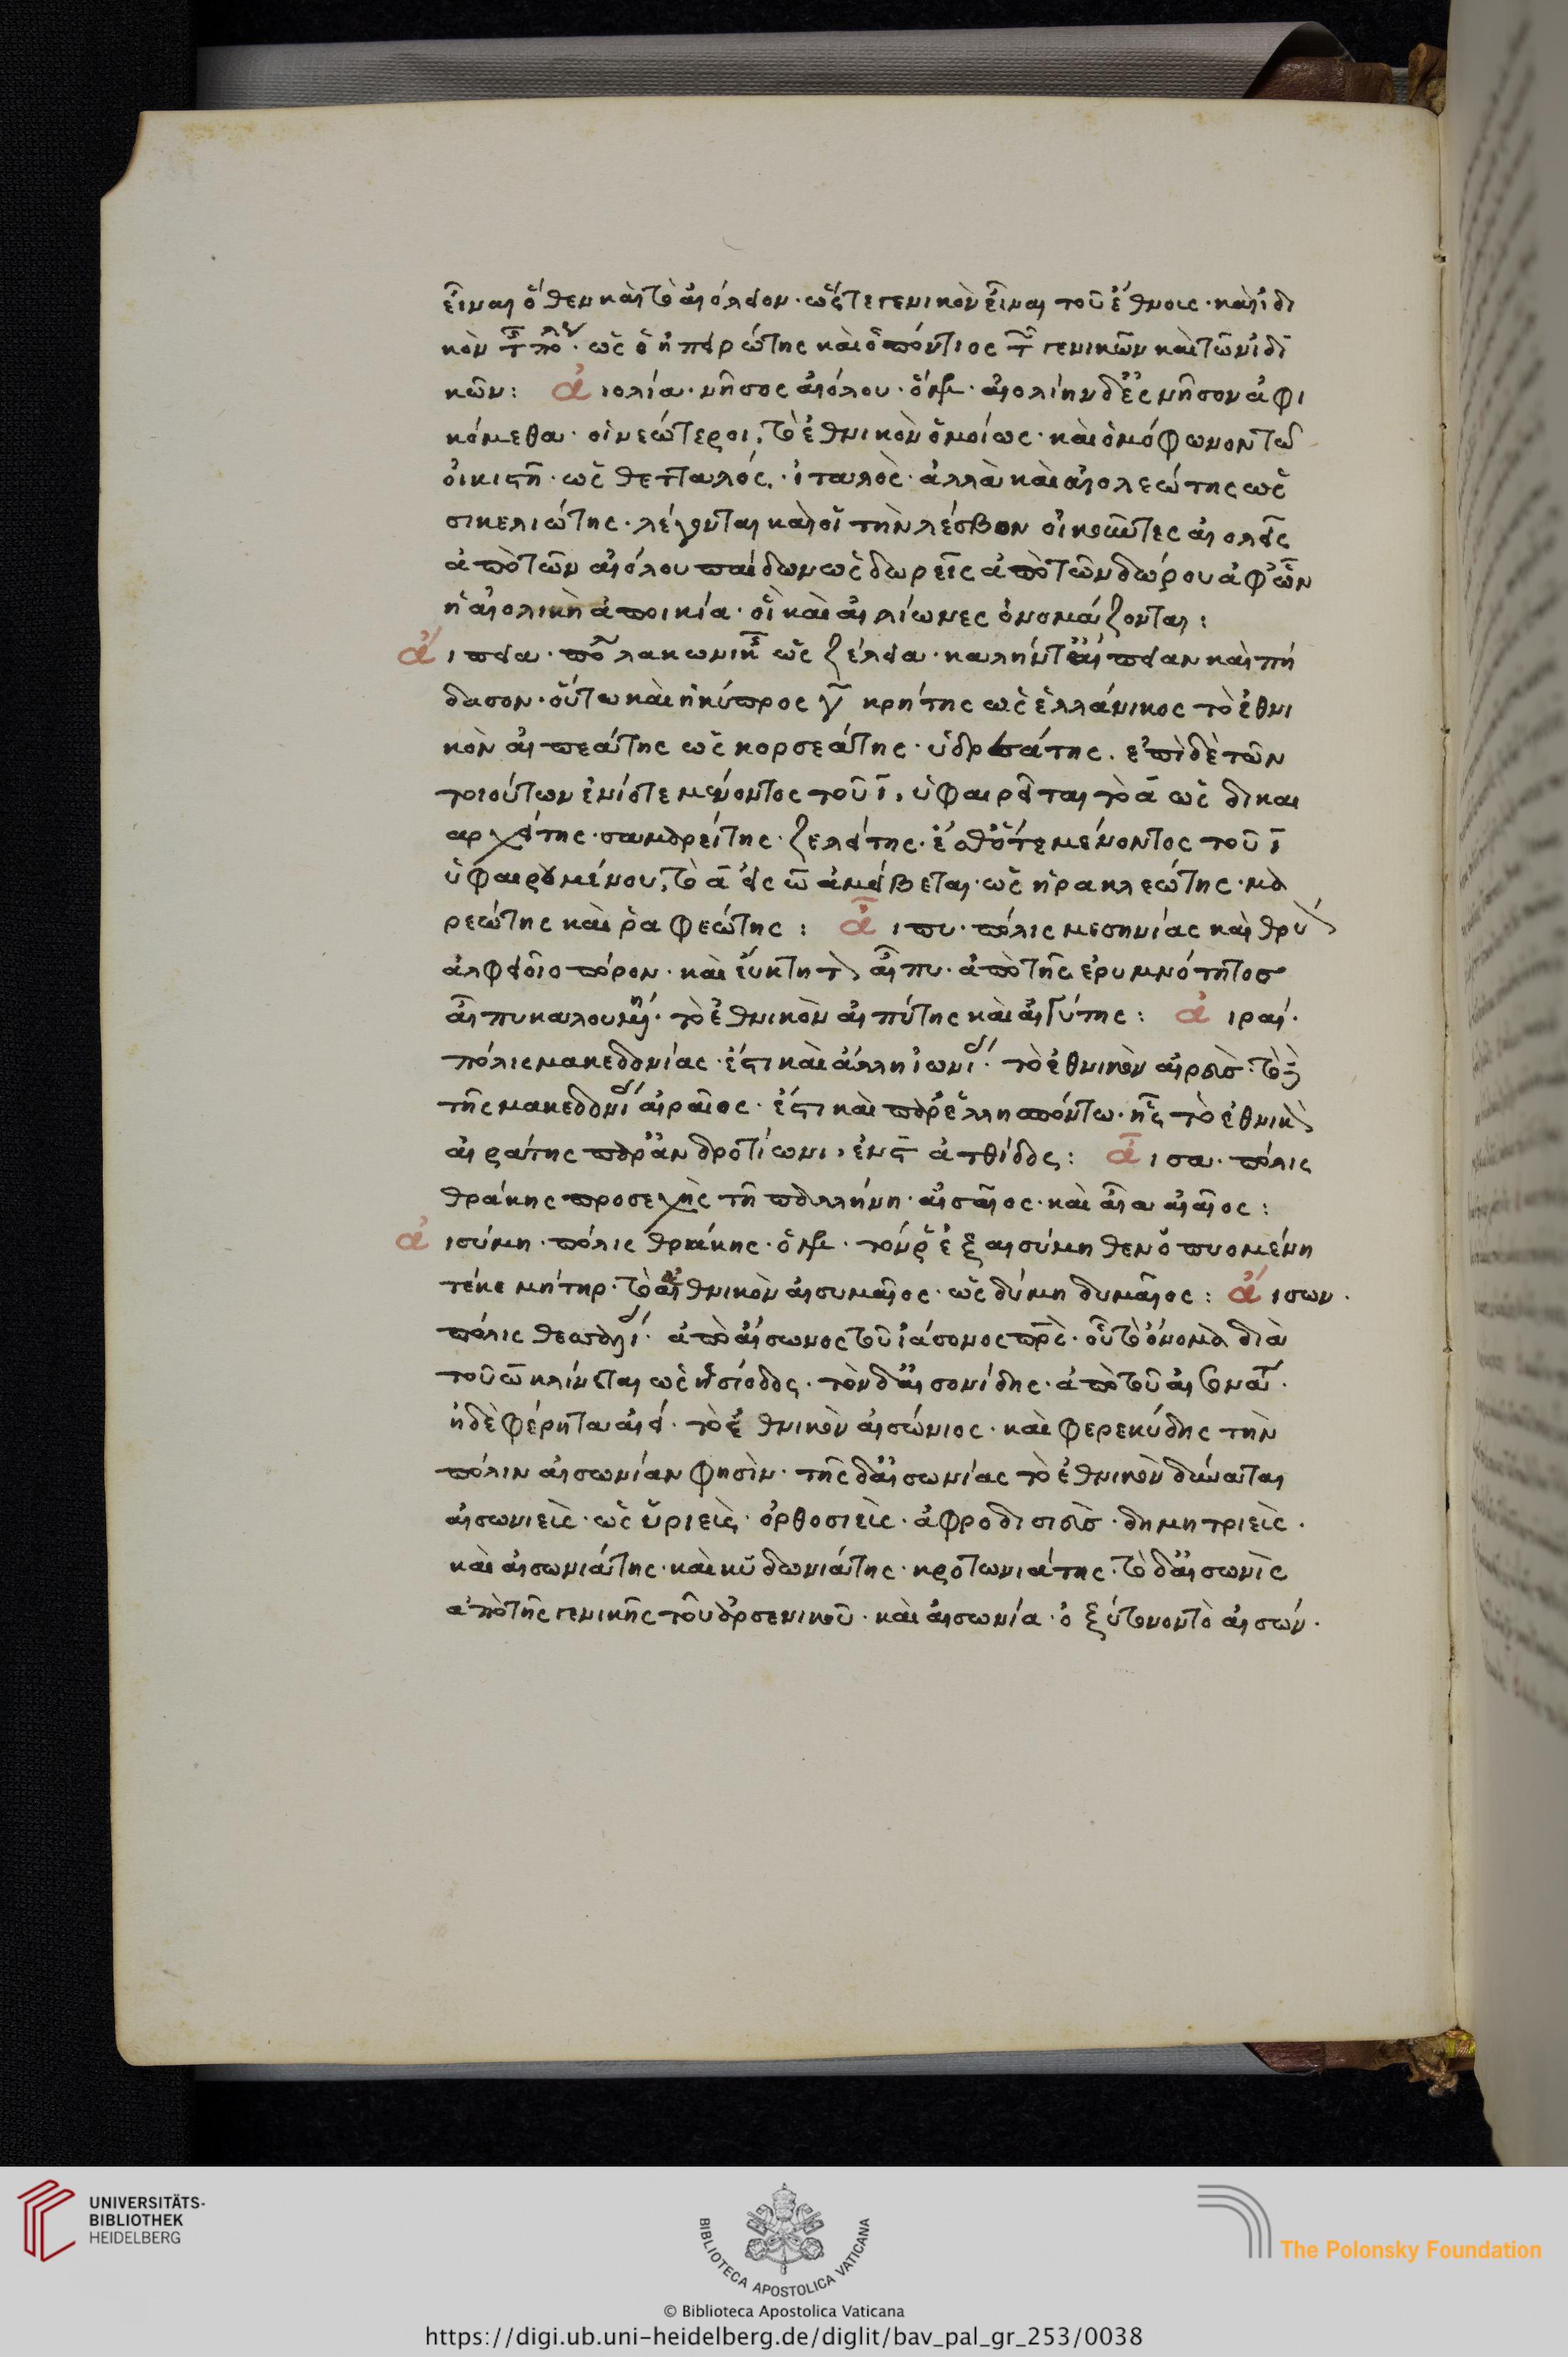 εἶναι ὅθεν καὶ τὸ αἰόλειον· ὥστε γενικὸν εἶναι τοῦ ἔθνους· καὶ ἰδι
κὸν · ὡς ὁ ἠπειρώτης καὶ ὁ πόντιος τῶν γενικῶν καὶ τῶν ἰδι
κῶν: Αἰολία· νῆσος αἰόλου· ὅμηρ· αἰολίην δ' ἐς νῆσον ἀφι
κόμεθα· οἱ νεώτεροι, τὸ ἐθνικὸν ὁμοίως· καὶ ὁμόφωνον τῶ
οἰκιστῆ· ὡς θετταλός· ἰταλὸς· ἀλλὰ καὶ αἰολεώτης ὡς
σικελιώτης· λέγονται καὶ οἱ τὴν λέσβον οἰκοῦντες αἰολεῖς
ἀπὸ τῶν αἰόλου παίδων ὡς δωρεῖς ἀπὸ τῶν δώρου ἀφ' ὧν
ἡ αἰολικὴ ἀποικία· οἳ καὶ αἰλίωνες ὀνομάζονται:
Αἴπεια· πό λακωνικῆς ὡς ζέλεια· καλήν τ' αἴπειαν καὶ πή
δασον· οὕτω καὶ ἡ κύπρος κρήτης ὡς ἑλλάνικος τὸ ἐθνι
κὸν αἰπεάτης ὡς κορσεάτης· ὑδρεάτης. ἐπὶ δὲ τῶν
τοιούτων ἐνίοτε μένοντος τοῦ ῑ, ὑφαιρεῖται τὸ ᾱ ὡς δικαι
αρχείτης· σανδρείτης· ζελείτης· ἔσθ' ὅτε μένοντος τοῦ ῑ
ὑφαιρουμένου, τὸ ᾱ εἰς ω̄ ἀμείβεται· ὡς ἡρακλεώτης· μα
ρεώτης καὶ ῥαφεώτης: Αἶπυ· πόλις μεσηνίας καὶ θρύον
ἀλφειοῖο πόρον· καὶ ἐύκτητον αἶπυ· ἀπὸ τῆς ἐρυμνότητος
αἶπυ καλουμένη· τὸ ἐθνικὸν αἰπύτης καὶ αἰγύτης: Αἰραί·
πόλις μακεδονίας· ἔστι καὶ ἄλλη ἰωνίας· τὸ ἐθνικὸν αἰραεὺς· τὸ
τῆς μακεδονίας αἰραῖος· ἔστι καὶ πρὸς ἑλλησπόντω· ἧς τὸ ἐθνικὸν
αἰράτης παρ' ἀνδροτίωνι, ἐν ϛ̄ ἀτθίδος: Αἶσα· πόλις
θράκης προσεχὴς τῆ παλλήνη· αἰσαῖος· καὶ αἶα αἰαῖος:
Αἰσύμη· πόλις θράκης· ὅμηρ· τόν ῥ' ἐξ αἰσύμηθεν ὀπυομένη
τέκε μήτηρ· τὸ ἐθνικὸν αἰσυμαῖος· ὡς δύμη δυμαῖος: Αἴσων·
πόλις θεσσαλίας· ἀπὸ αἴσωνος τοῦ ἰάσονος πρς· οὗ τὸ ὄνομα διὰ
τοῦ ω̄ κλίνεται ὡς ἡσίοδος· τὸν δ' αἰσονίδης· ἀπὸ τοῦ
ἠδὲ φέρητα αἰεί· τὸ ἐθνικὸν αἰσώνιος· καὶ φερεκύδης τὴν
πόλιν αἰσωνίαν φησὶν· τῆς δ' αἰσωνίας τὸ ἐθνικὸν δύναται
αἰσωνιεὶς· ὡς ὑριεὶς· ὀρθοσιεὶς· ἀφροδισιεὺς· δημητριεὶς·
καὶ αἰσωνιάτης· καὶ κυδωνιάτης· κροτωνιάτης· τὸ δ' αἰσωνὶς
ἀπὸ τῆς γενικῆς τοῦ ἀρσενικοῦ· καὶ αἰσωνία· ὀξύτονον τὸ αἰσών·
UNIVERSITÄTS-
BIBLIOTHEK
HEIDELBERG
BIBLIOTECA APOSTOLICA VATICANA
The Polonsky Foundation
© Biblioteca Apostolica Vaticana
https://digi.ub.uni-heidelberg.de/diglit/bav_pal_gr_253/0038